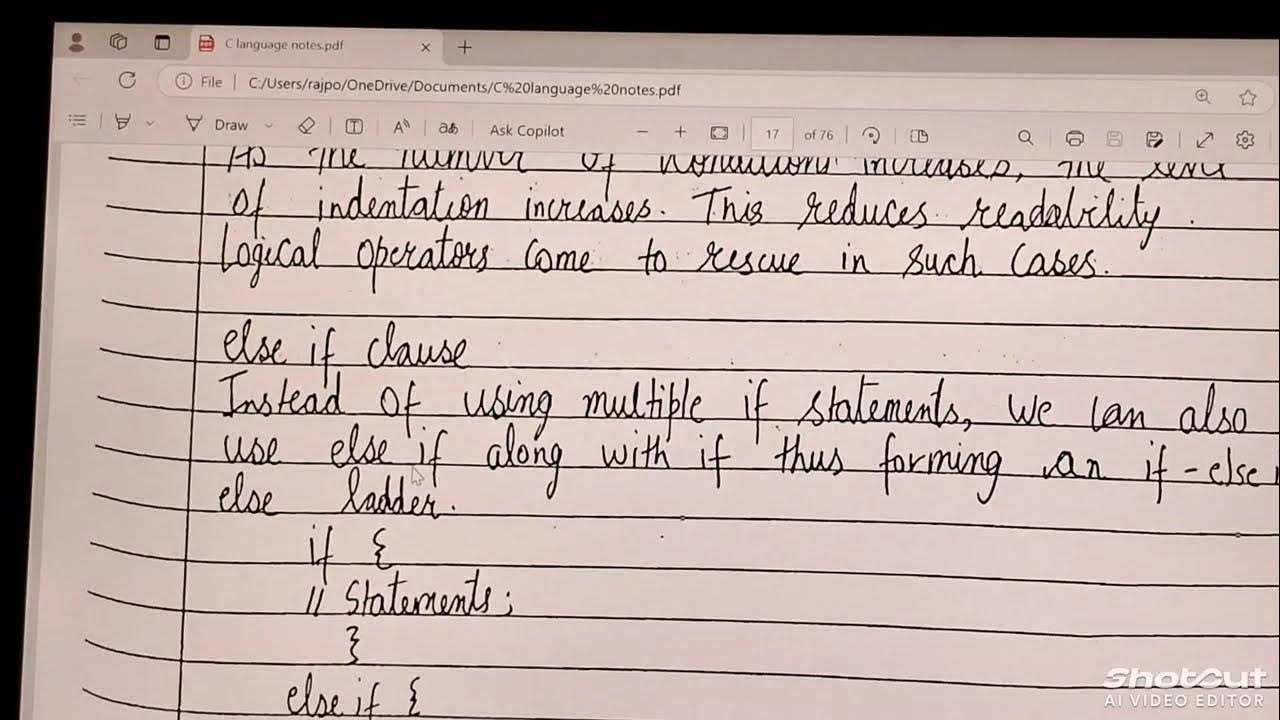 C language notes.pdf
File C:/Users/rajpo/OneDrive/Documents/C%20language%20notes.pdf
Draw Ask Copilot 17 of 76
As the number of conditions increases, the level
of indentation increases. This reduces readability.
Logical operators come to rescue in such cases.
else if clause
Instead of using multiple if statements, we can also
use else if along with if thus forming an if-else
else ladder.
if {
// Statements;
}
else if {
ShotCut
AI VIDEO EDITOR